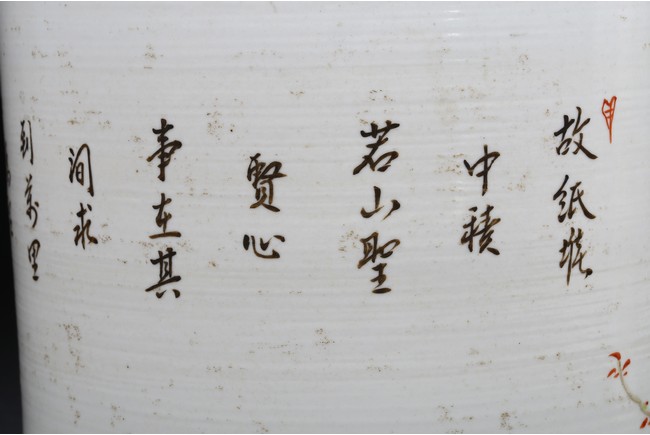 故紙堆
中積
若山聖
賢心
事在其
间求
到萬里